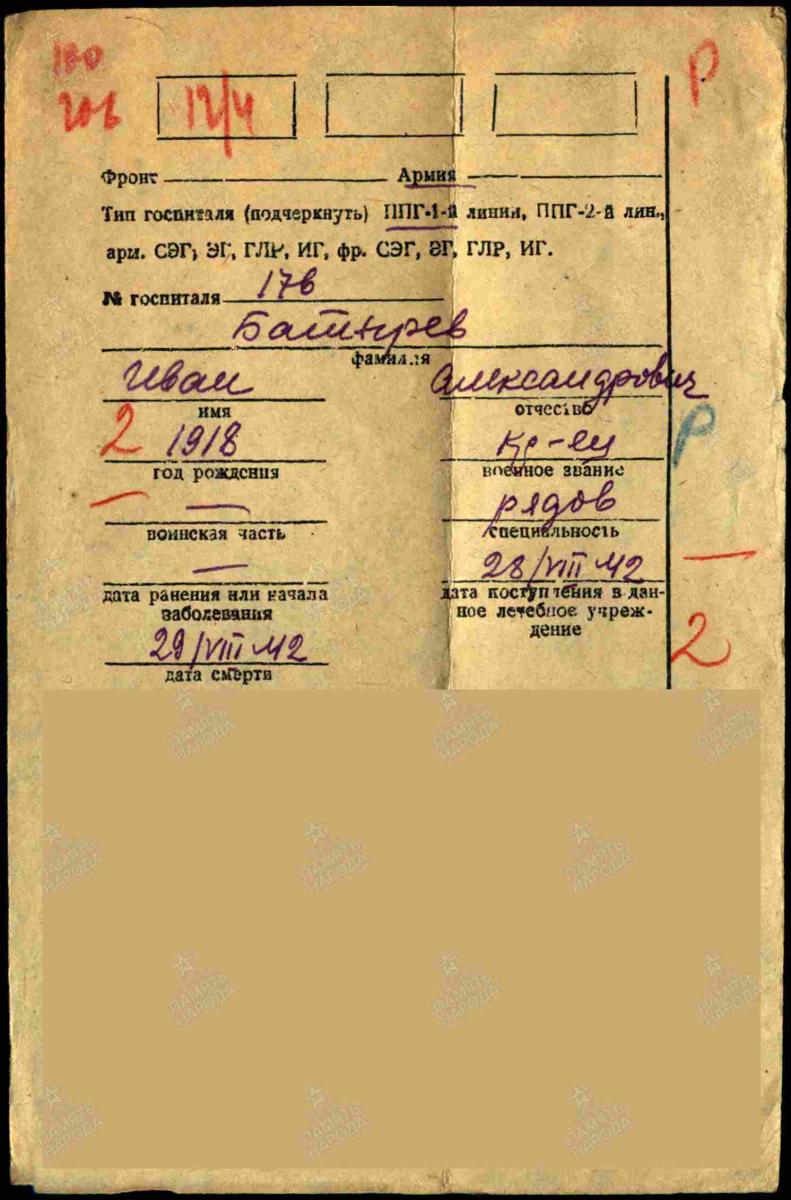 100
206 12/4 Р
Фронт Армия
Тип госпиталя (подчеркнуть) ППГ-1-й линии, ППГ-2-й лин.,
арм. СЭГ, ЭГ, ГЛР, ИГ, фр. СЭГ, ЭГ, ГЛР, ИГ.
№ госпиталя 176
Батырев
фамилия
Иван Александрович
имя отчество
2 1918 кр-ец Р
год рождения военное звание
— рядов
воинская часть специальность
— 28/VIII 42
дата ранения или начала заболевания дата поступления в данное лечебное учреждение
2
29/VIII 42
дата смерти
ПАМЯТЬ НАРОДА